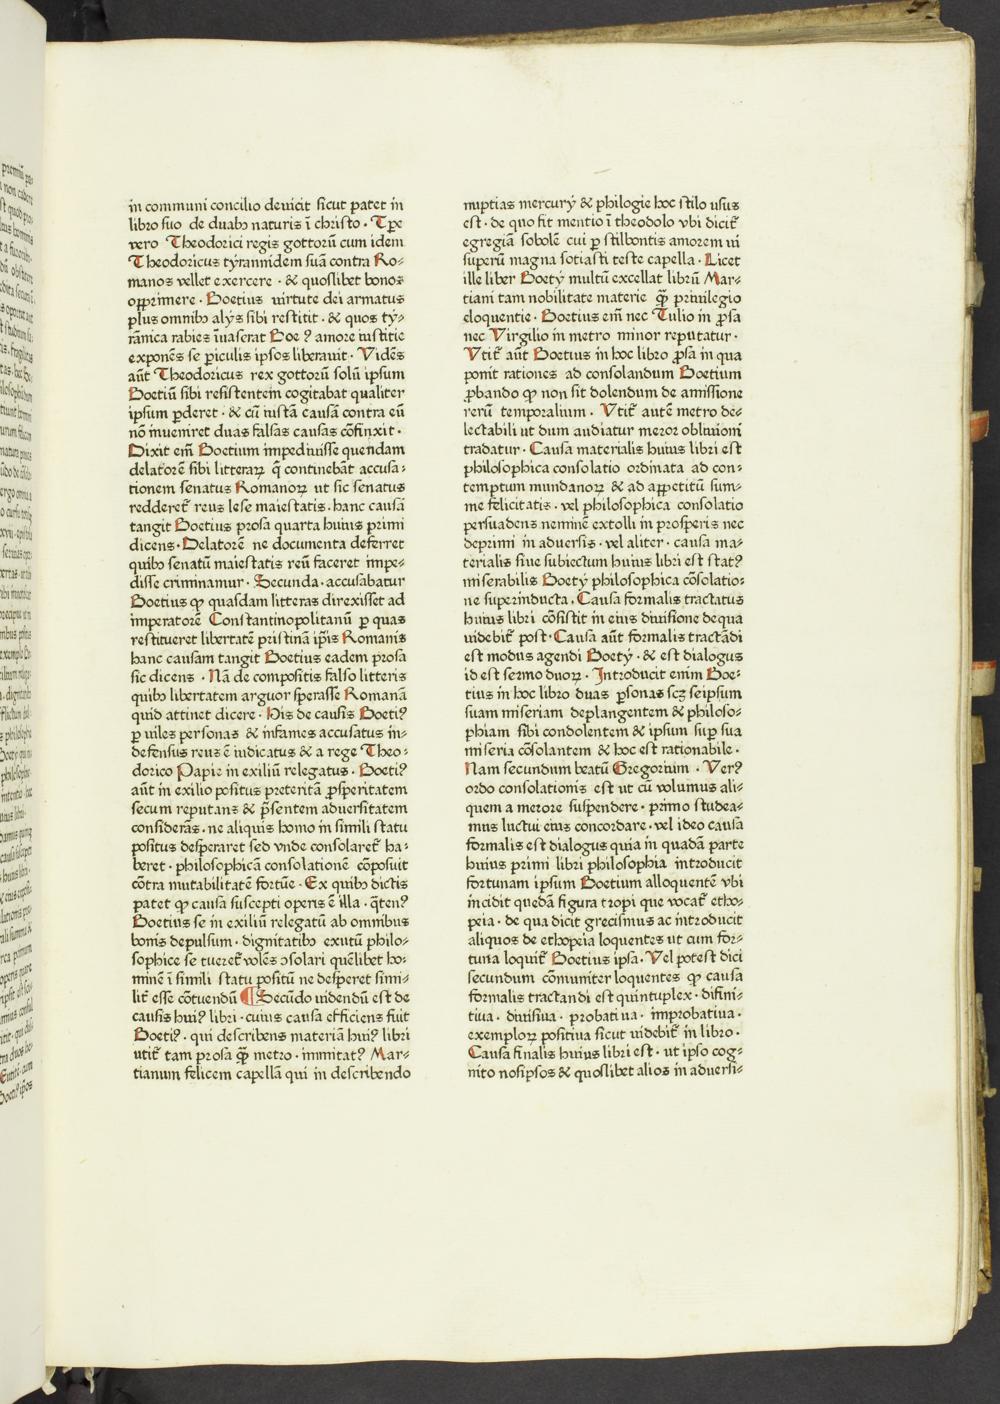 in communi concilio deuicit sicut patet in
libro suo de duabꝫ naturis ĩ christo · Tp̱e
vero Theodorici regis gottorũ cum idem
Theodoricus tyrannidem suã contra Ro⸗
manos vellet exercere · & quoslibet bonos
opprimere · Boetius uirtute dei armatus
plus omnibꝫ alijs sibi restitit · & quos ty⸗
rãnica rabies ĩuaserat Boeꝰ amore iusticie
exponẽs se ꝑiculis ipsos liberauit · Vidẽs
aũt Theodoricus rex gottorũ solũ ipsum
Boetiũ sibi resistentem cogitabat qualiter
ipsum ꝑderet · & cũ iustã causã contra eũ
nõ inueniret duas falsas causas cõfinxit ·
Dixit em̃ Boetium impediuisse quendam
delatorẽ sibi litteraꝝ q̃ continebãt accusa⸗
tionem senatus Romanoꝝ ut sic senatus
redderet᷑ reus lese maiestatis · hanc causã
tangit Boetius prosa quarta huius primi
dicens · Delatorẽ ne documenta deferret
quibꝫ senatũ maiestatis reũ faceret impe⸗
disse criminamur · Secunda · accusabatur
Boetius ꝙ quasdam litteras direxisset ad
imperatorẽ Constantinopolitanũ ꝑ quas
restitueret libertatẽ pristinã ip̃is Romanis
hanc causam tangit Boetius eadem prosa
sic dicens · Nã de compositis falso litteris
quibꝫ libertatem arguor sperasse Romanã
quid attinet dicere · His de causis Boetiꝰ
ꝑ uiles personas & infames accusatus in⸗
defensus reus ẽ iudicatus & a rege Theo⸗
dorico Papie in exiliũ relegatus · Boetiꝰ
aũt in exilio positus preteritã ꝓsperitatem
secum reputans & p̃sentem aduersitatem
considerãs · ne aliquis homo in simili statu
positus desperaret sed vnde consolaret᷑ ha⸗
beret · philosophicã consolationẽ cõposuit
cõtra mutabilitatẽ fortũe · Ex quibꝫ dictis
patet ꝙ causa suscepti operis ẽ illa · q̃tenꝰ
Boetius se in exiliũ relegatũ ab omnibus
bonis depulsum · dignitatibꝫ exutũ philo⸗
sophice se tueret᷑ volẽs ɔsolari quẽlibet ho⸗
minẽ ĩ simili statu positũ ne desperet simi⸗
lit᷑ esse cõtuendũ ¶ Secũdo uidendũ est de
causis huiꝰ libri · cuius causa efficiens fuit
Boetiꝰ · qui describens materiã huiꝰ libri
utit᷑ tam prosa q̃ꝫ metro · immitatꝰ Mar⸗
tianum felicem capellã qui in describendo
nuptias mercurij & philogie hoc stilo usus
est · de quo fit mentio ĩ theodolo vbi dicit᷑
egregiã sobolẽ cui ꝑ stilbontis amorem ui
superũ magna sotiasti teste capella · Licet
ille liber Boetij multũ excellat librũ Mar⸗
tiani tam nobilitate materie q̃ꝫ priuilegio
eloquentie · Boetius em̃ nec Tulio in ꝓsa
nec Virgilio in metro minor reputatur ·
Vtit᷑ aũt Boetius in hoc libro ꝓsa in qua
ponit rationes ad consolandum Boetium
ꝓbando ꝙ non sit dolendum de amissione
rerũ temporalium · Vtit᷑ autẽ metro de⸗
lectabili ut dum audiatur meror obliuioni
tradatur · Causa materialis huius libri est
philosophica consolatio ordinata ad con⸗
temptum mundanoꝝ & ad appetitũ sum⸗
me felicitatis · vel philosophica consolatio
persuadens neminẽ extolli in prosperis nec
deprimi in aduersis · vel aliter · causa ma⸗
terialis siue subiectum huius libri est statꝰ
miserabilis Boetij philosophica cõsolatio⸗
ne superinducta · Causa formalis tractatus
huius libri cõsistit in eius diuisione de qua
uidebit᷑ post · Causa aũt formalis tractãdi
est modus agendi Boetij · & est dialogus
id est sermo duoꝝ · Introducit enim Boe⸗
tius in hoc libro duas ꝑsonas scꝫ seipsum
suam miseriam deplangentem & philoso⸗
phiam sibi condolentem & ipsum suꝑ sua
miseria cõsolantem & hoc est rationabile ·
Nam secundum beatũ Gregorium · Verꝰ
ordo consolationis est ut cũ volumus ali⸗
quem a merore suspendere · primo studea⸗
mus luctui eius concordare · vel ideo causa
formalis est dialogus quia in quadã parte
huius primi libri philosophia introducit
fortunam ipsum Boetium alloquentẽ vbi
incidit quedã figura tropi que vocat᷑ etho⸗
peia · de qua dicit grecismus ac introducit
aliquos de ethopeia loquentes ut cum for⸗
tuna loquit᷑ Boetius ipsa · Vel potest dici
secundum cõmuniter loquentes ꝙ causa
formalis tractandi est quintuplex · difini⸗
tiua · diuisiua · probatiua · improbatiua ·
exemploꝝ positiua sicut uidebit᷑ in libro ·
Causa finalis huius libri est · ut ipso cog⸗
nito nosipsos & quoslibet alios in aduersi⸗